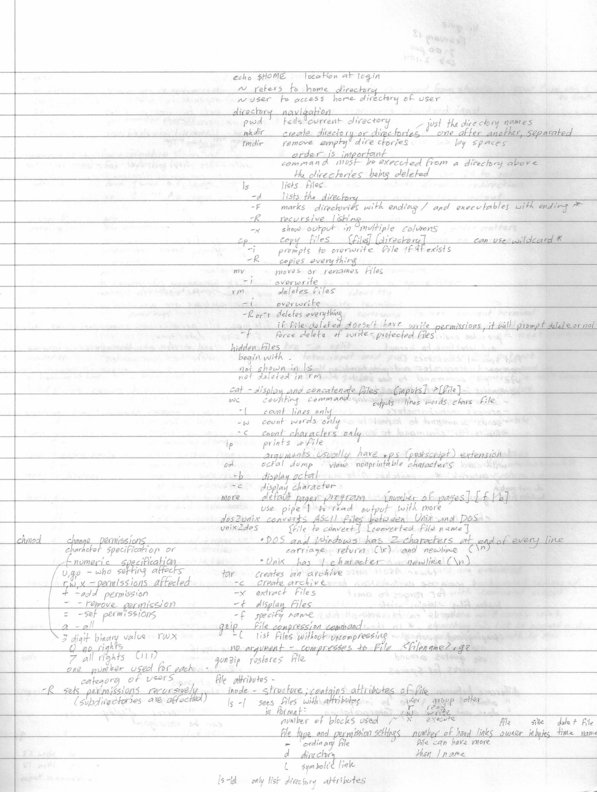 echo $HOME location at login
~ refers to home directory
~user to access home directory of user
directory navigation
pwd tells current directory
mkdir create directory or directories, just the directory names one after another, separated by spaces
rmdir remove empty directories
order is important
command must be executed from a directory above
the directories being deleted
ls lists files
-d lists the directory
-F marks directories with ending / and executables with ending *
-R recursive listing
-x show output in multiple columns
cp copy files [file] [directory] can use wildcard *
-i prompts to overwrite file if it exists
-R copies everything
mv moves or renames files
-i overwrite
rm deletes files
-i overwrite
-R or -r deletes everything
if file deleted doesn't have write permissions, it will prompt delete or not
-f force delete of write-protected files
hidden files
begin with .
not shown in ls
not deleted in rm
cat - display and concatenate files [inputs] >[file]
wc counting command outputs lines words chars file
-l count lines only
-w count words only
-c count characters only
lp prints a file
arguments usually have .ps (postscript) extension
od octal dump - view nonprintable characters
-b display octal
-c display character
more default pager program [number of pages] [f|b]
use pipe | to read output with more
dos2unix converts ASCII files between Unix and DOS
unix2dos [file to convert] [converted file name]
• DOS and Windows has 2 characters at end of every line
carriage return (\r) and newline (\n)
• Unix has 1 character newline (\n)
tar creates an archive
-c create archive
-x extract files
-t display files
-f specify name
gzip file compression command
-l list files without uncompressing
no argument - compresses to file <filename>.gz
gunzip restores file
file attributes -
inode - structure, contains attributes of file
ls -l sees files with attributes
user, group other
r read
w write
x execute
number of blocks used
file type and permission settings number of hard links owner size in bytes date + time file name
- ordinary file file can have more
d directory than 1 name
l symbolic link
ls -ld only list directory attributes
chmod change permissions
character specification or
numeric specification
u,g,o - who setting affects
r,w,x - permissions affected
+ - add permission
- - remove permission
= - set permissions
a - all
3 digit binary value rwx
0 no rights
7 all rights (111)
one number used for each
category of users
-R sets permissions recursively
(subdirectories are affected)